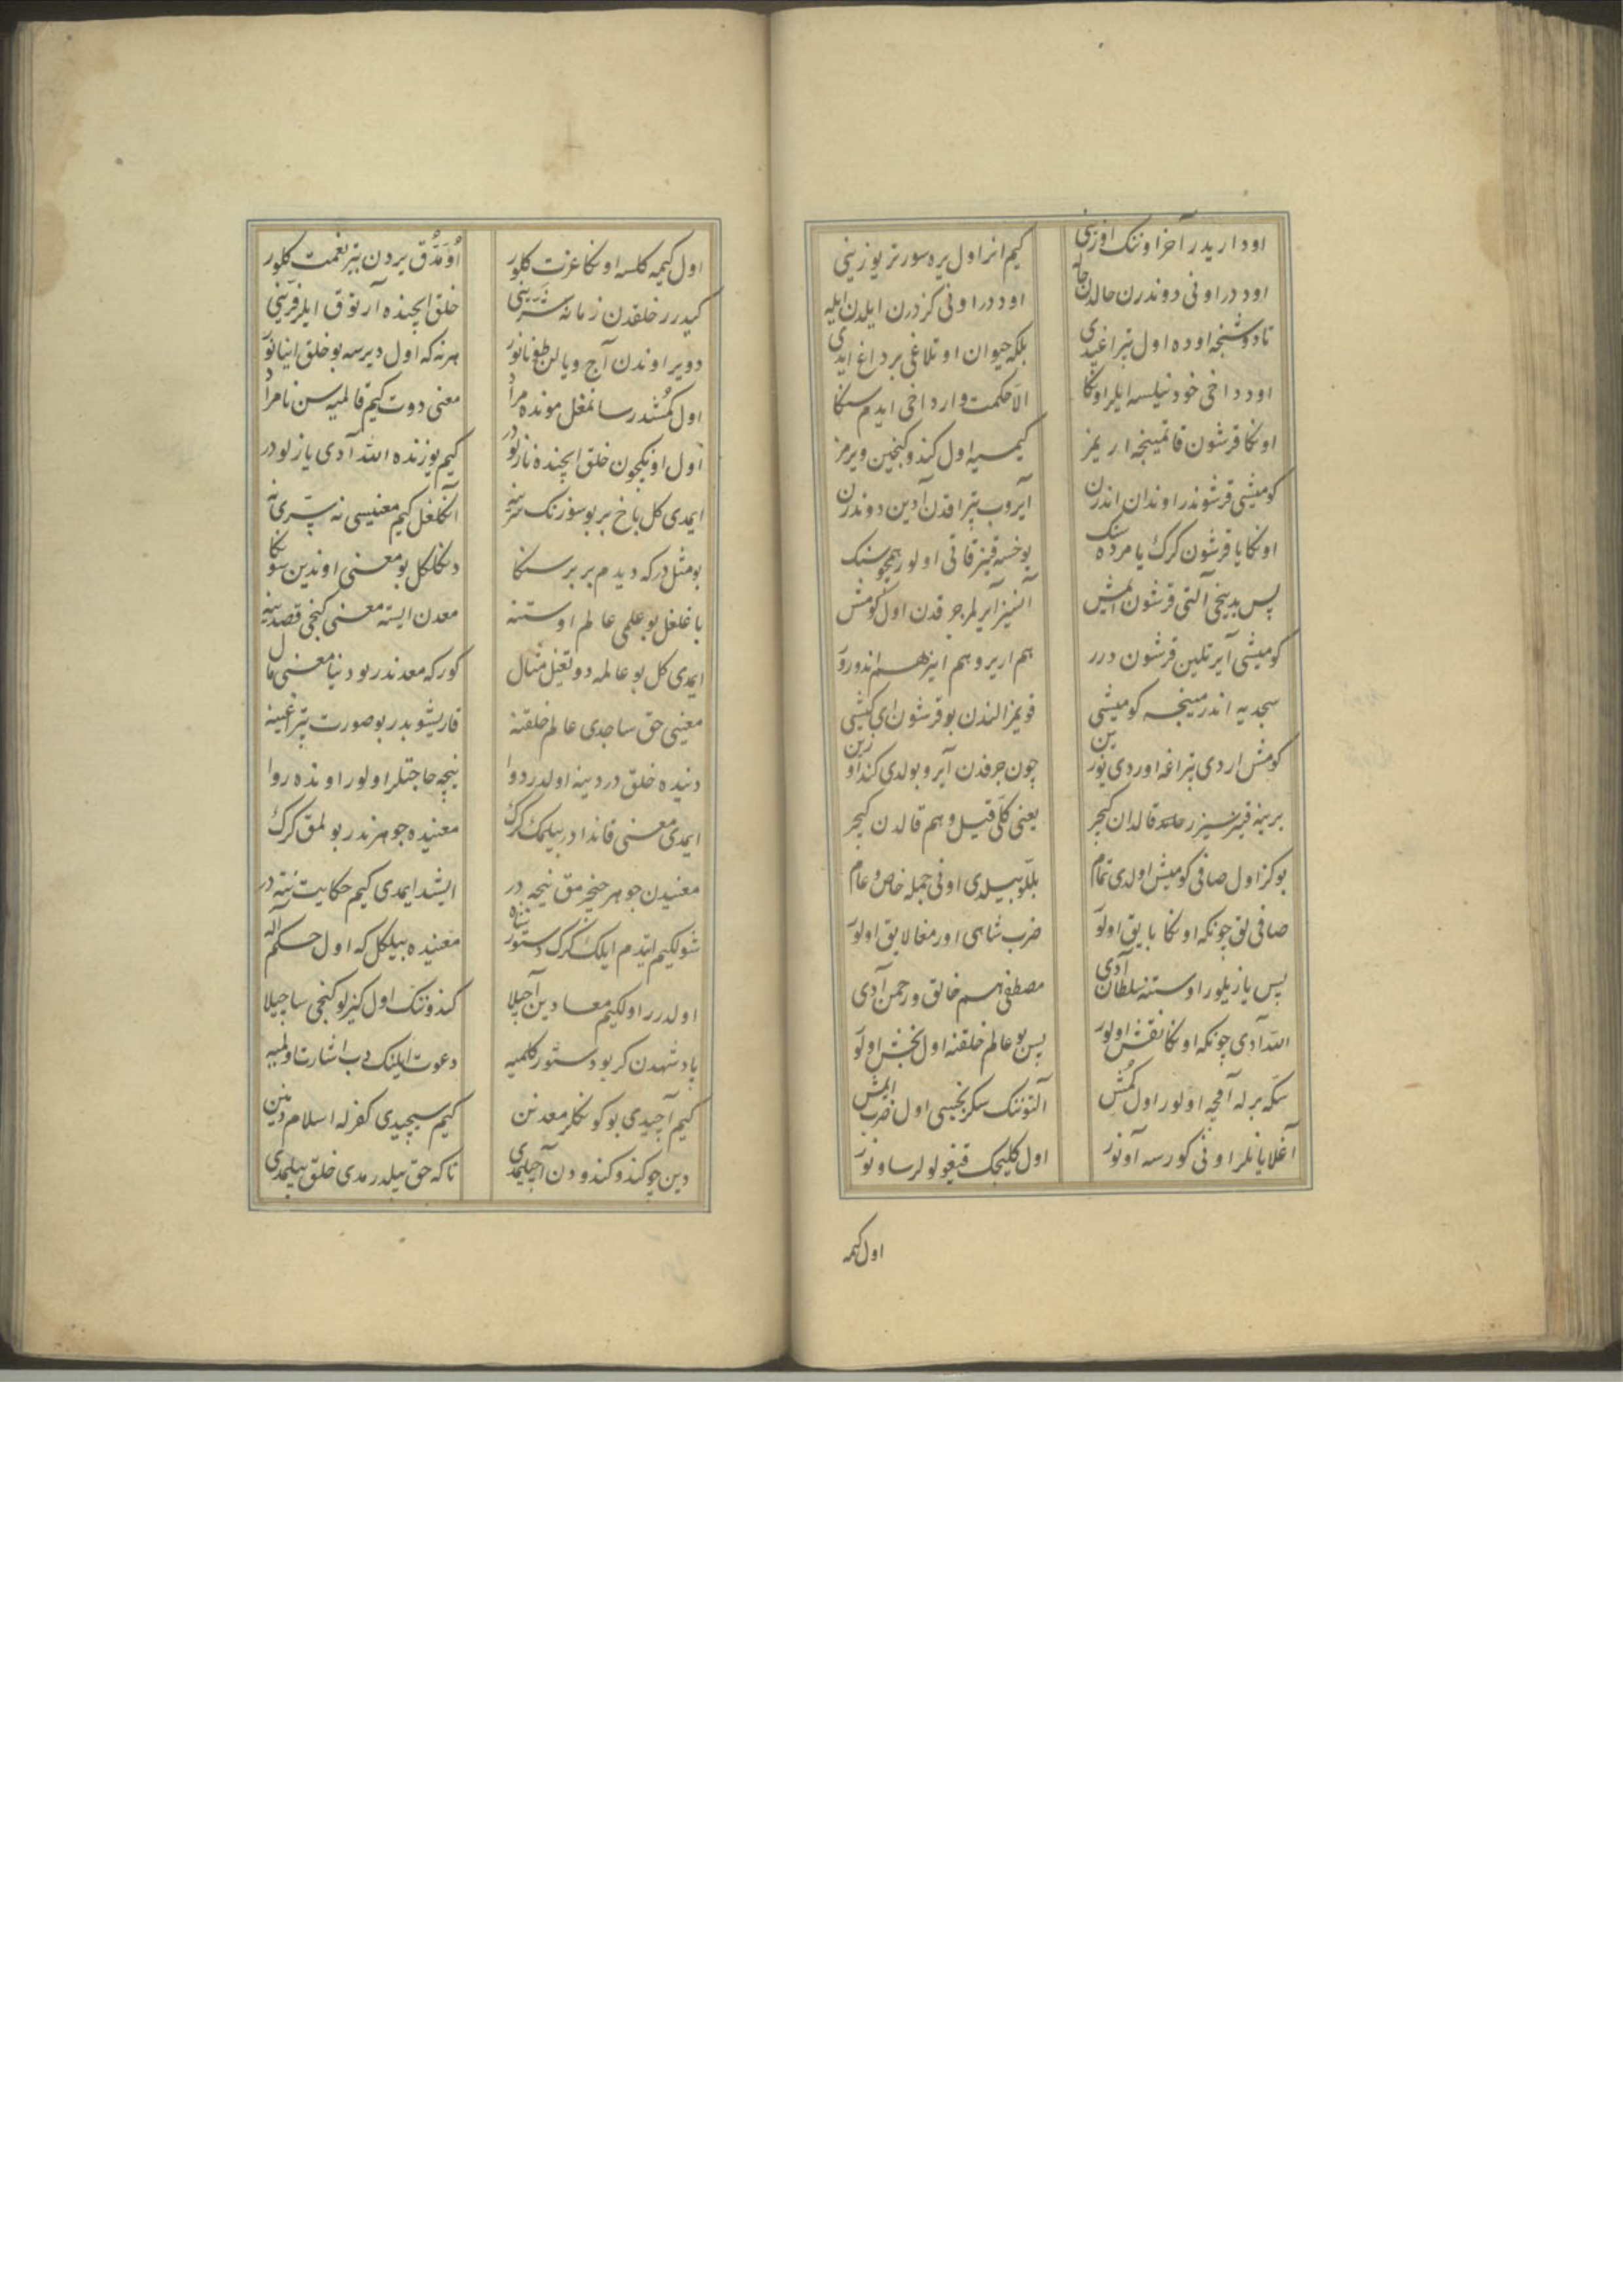 اود اریدر آخر اوننک اوزینی کیم انر اول یره سورتر یوزینی
اود در اونی دوندرن حالدن حاله اود در اونی کزدرن ایلدن ایله
تا دوشنجه اوده اول تپراغیدی بلکه حیوان اوتلاغی بر داغ ایدی
اود داخی خود نیلسه ایلر اونکا الا حکمت وار داخی ایدم سنکا
اونکا قرشون قاتمینجه اریمز کیمسیه اول کندو کنجین ویرمز
کومیشی قرشوندر اوندان اندرن آیروب تپراقدن آدین دوندرن
اونکا یا قرشون کرک یا مرده سنک یوخسه قیز قاتی اولور همچو سنک
پس بدیخی آلتی قرشون المش آنسز آیرلمز جرقدن اول کومش
کومیشی آیرتلین قرشون درر هم اریر و هم اینر هم اندورور
سجدیه اندرمینجه کومیشی قویمز الندن بو قرشون ای کیشی
کومش اردی تپراغه اوردی یوزین چون جرقدن آیرو بولدی کنداوزین
برینه قیزسیز قالدان کیچر یعنی کلی قیل و هم قالدن کیچر
بو کز اول صافی کومیش اولدی تمام بللو بیلدی اونی جمله خاص و عام
صافی لق چونکه اونکا بایق اولور ضرب شاهی اورمغا لایق اولور
پس یازیلور اوستنه سلطان آدی مصطفی هم خالق و رحمن آدی
الله آدی چونکه اونکا نقش اولور پس بو عالم خلقنه اول بخش اولور
سکه برله آقچه اولور اول کمش آلتوننک سکزنجیسی اول ضرب ایمش
آغلایانلر اونی کورسه آونور اول کلیجک قیغولولر ساونور
اول کیمه
اول کیمه کلسه اونکا عزت کلور اومدق یردن بتر نعمت کلور
کیدرر خلقدن زمانه شرینی خلق ایچنده آرتوق ایلر فرینی
دویر اوندن آج و یالن طونانور هر نه که اول دیرسه بو خلق اینانور
اول کمشدر سانمغل مونده مراد معنی دوت کیم قالمیه سن نامراد
اول اونکچون خلق ایچنده نازلودر کیم یوزنده الله آدی یازلودر
ایمدی کل باخ بر بو سوزنک سرنه آنکلاغل کیم معنیسی نه سری نه
بو مثل درکه دیدم بر بر سنکا دنکلاکل بو معنی اوندین سونکا
باغلغل بو علمی عالم اوستنه معدن ایسته معنی کنجی قصدینه
ایمدی کل بو عالمه دوتغیل مثال کورکه معدندر بو دنیا معنی مال
معنیی حق ساجدی عالم خلقنه قاریشوبدر بو صورت تپراغینه
دنیده خلق دردینه اولدر دوا نیجه حاجتلر اولور اونده روا
ایمدی معنی قاندادر بیلمک کرک معنیده جوهر ندر بولمق کرک
معنیدن جوهر چیخرمق نیجه در ایشد ایمدی کیم حکایت نته در
شولکیم ایتدم ایلک کرک دستور پناه معنیده بیلکل که اول حکم اله
اولدرر اولکیم معادین آچیلا کندوننک اول کیزلو کنجی ساچیلا
پادشهدن کر بو دستور کلمیه دعوت ایلنک دب اشارت اولمیه
کیم آچیدی بو کونکلر معدنن کیم سیچیدی کفرله اسلام دینین
دین چو کندو کندودن آچیلمدی تا که حق بیلدرمدی خلق بیلمدی